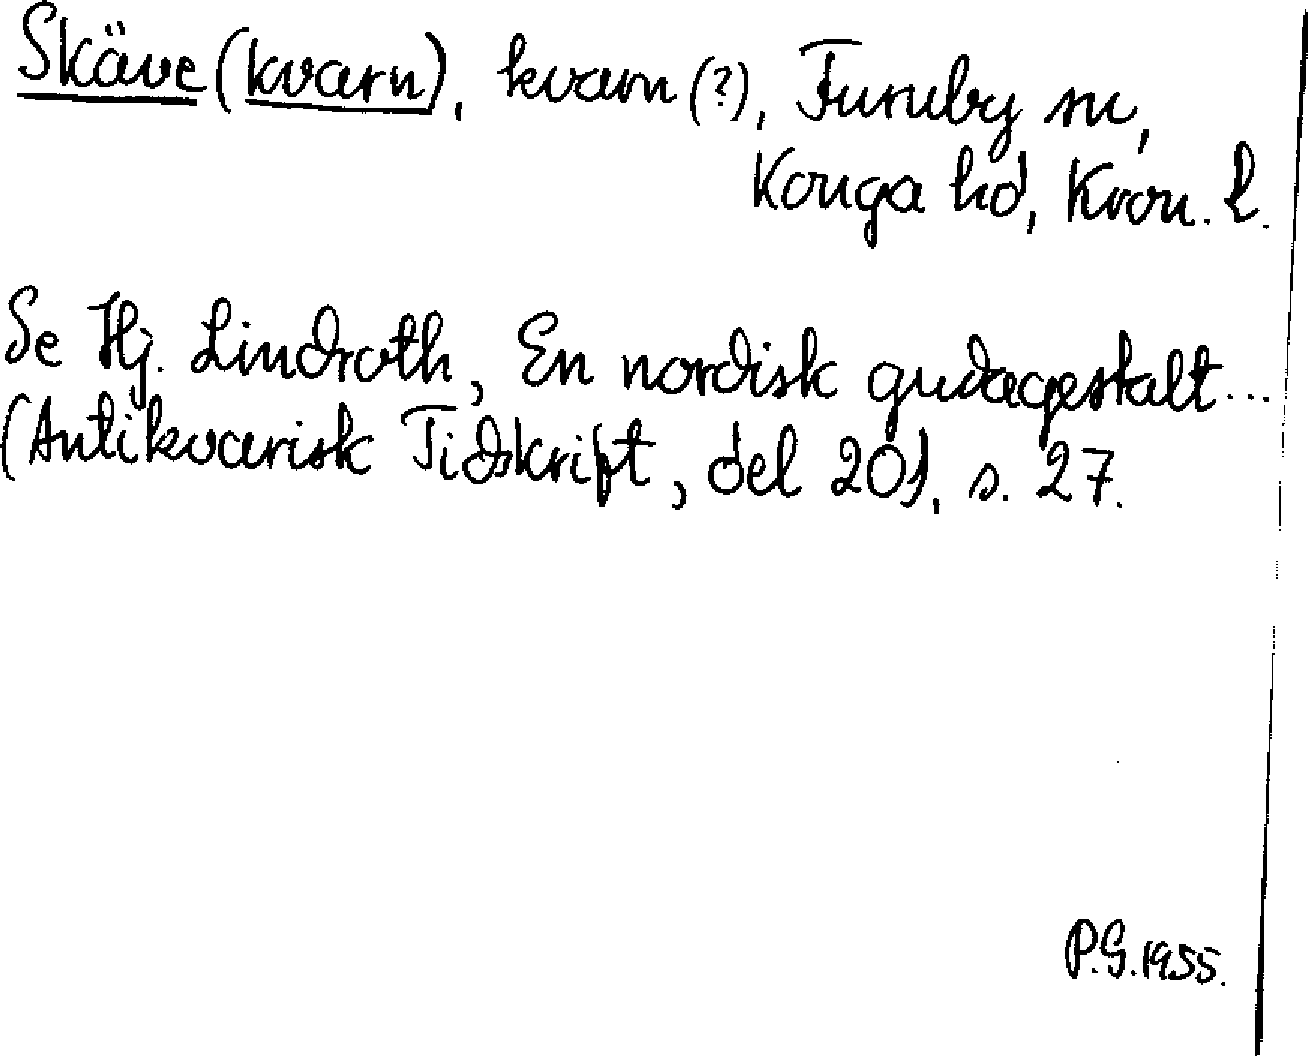 Skäve (kvarn), kvarn (?), Furuby sn,
Konga hd, Kron. l.
Se Hj. Lindroth, En nordisk gudagestalt...
(Antikvarisk Tidskrift, del 20), s. 27.
P.G. 1955.